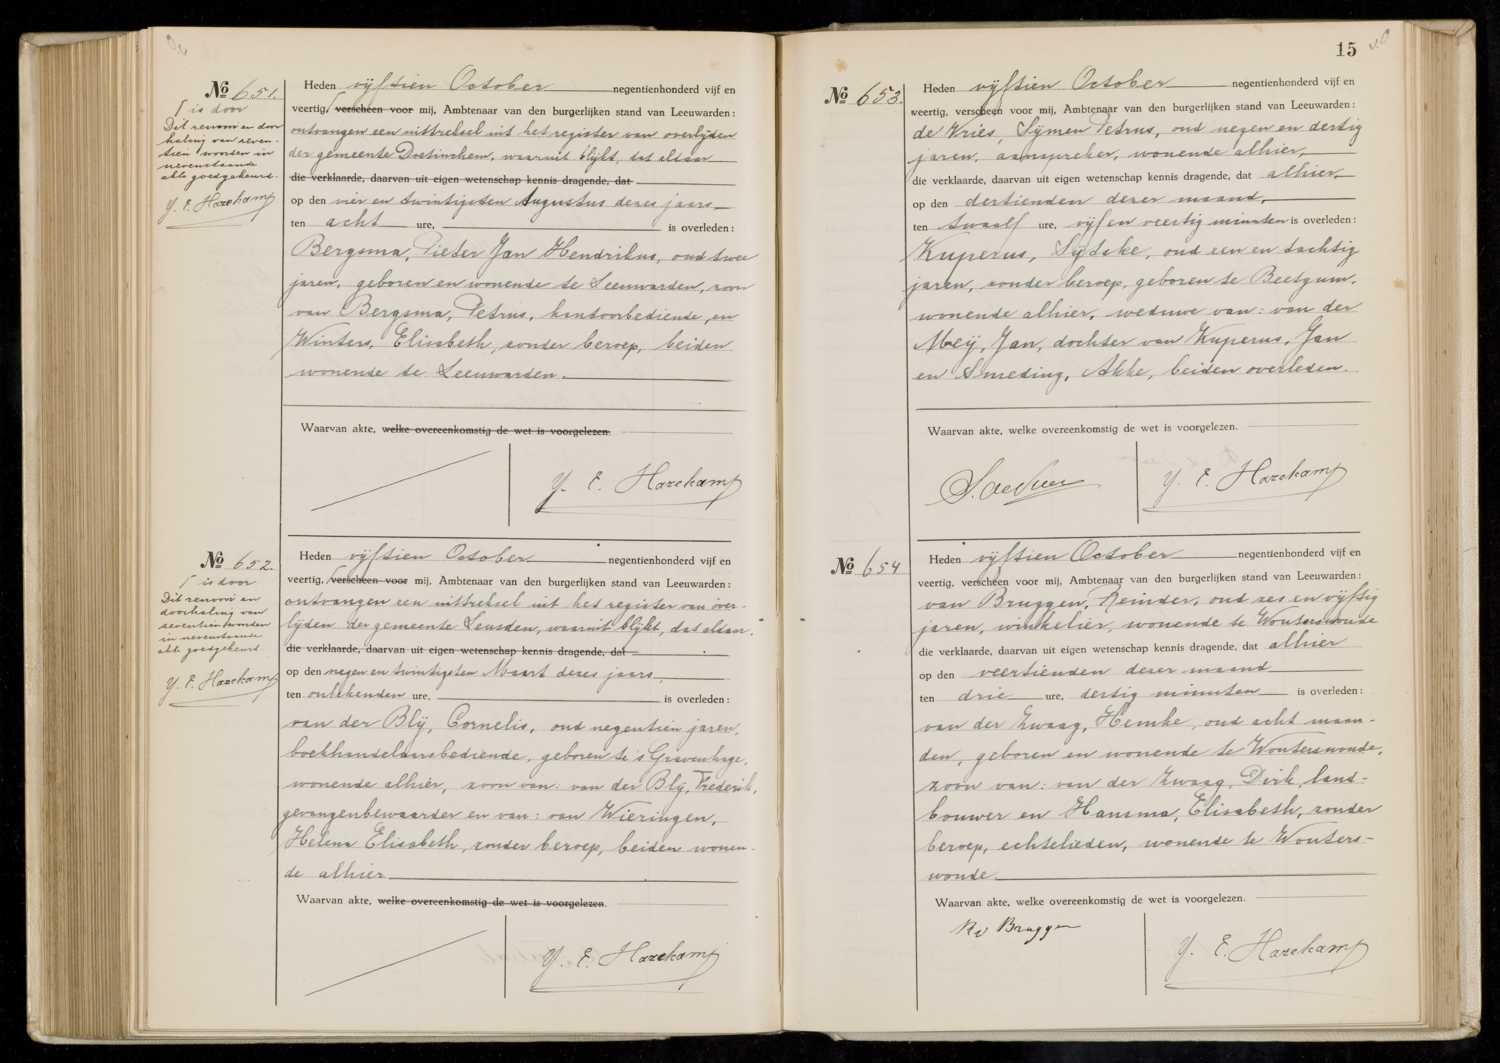 No 651.
Γ is door
Dit renvooi en door
haling van zeven-
tien woorden in
nevenstaande
akte goedgekeurd.
Y. E. Hazekamp
Heden vijftien October negentienhonderd vijf en
veertig, Γ verscheen voor mij, Ambtenaar van den burgerlijken stand van Leeuwarden:
ontvangen een uittreksel uit het register van overlijden
der gemeente Doetinchem, waaruit blijkt, dat aldaar
die verklaarde, daarvan uit eigen wetenschap kennis dragende, dat
op den vier en twintigsten Augustus dezes jaars
ten acht ure, is overleden:
Bergsma, Pieter Jan Hendrikus, oud twee
jaren, geboren en wonende te Leeuwarden, zoon
van Bergsma, Petrus, kantoorbediende, en
Winters, Elisabeth, zonder beroep, beiden
wonende te Leeuwarden.
Waarvan akte, welke overeenkomstig de wet is voorgelezen.
Y. E. Hazekamp
No 652.
Γ is door
Dit renvooi en
doorhaling van
zeventien woorden
in nevenstaande
akte goedgekeurd.
Y. E. Hazekamp
Heden vijftien October negentienhonderd vijf en
veertig, Γ verscheen voor mij, Ambtenaar van den burgerlijken stand van Leeuwarden:
ontvangen een uittreksel uit het register van over-
lijden der gemeente Leusden, waaruit blijkt, dat aldaar.
die verklaarde, daarvan uit eigen wetenschap kennis dragende, dat
op den negen en twintigsten Maart dezes jaars,
ten onbekenden ure, is overleden:
van der Blij, Cornelis, oud negentien jaren,
boekhandelaarsbediende, geboren te 's Gravenhage,
wonende alhier, zoon van: van der Blij, Frederik,
gevangenbewaarder en van: van Wieringen,
Helena Elisabeth, zonder beroep, beiden wonen-
de alhier
Waarvan akte, welke overeenkomstig de wet is voorgelezen.
Y. E. Hazekamp
15
No 653.
Heden vijftien October negentienhonderd vijf en
veertig, verscheen voor mij, Ambtenaar van den burgerlijken stand van Leeuwarden:
de Vries, Sijmen Petrus, oud negen en dertig
jaren, aanspreker, wonende alhier,
die verklaarde, daarvan uit eigen wetenschap kennis dragende, dat alhier,
op den dertienden dezer maand,
ten twaalf ure, vijf en veertig minuten is overleden:
Kuperus, Sijtske, oud een en tachtig
jaren, zonder beroep, geboren te Beetgum,
wonende alhier, weduwe van: van der
Meij, Jan, dochter van Kuperus, Jan
en Smeding, Akke, beiden overleden.
Waarvan akte, welke overeenkomstig de wet is voorgelezen.
S. de Vries
Y. E. Hazekamp
No 654
Heden vijftien October negentienhonderd vijf en
veertig, verscheen voor mij, Ambtenaar van den burgerlijken stand van Leeuwarden:
van Bruggen, Reinder, oud zes en vijftig
jaren, winkelier, wonende te Wouterswoude
die verklaarde, daarvan uit eigen wetenschap kennis dragende, dat alhier
op den veertienden dezer maand
ten drie ure, dertig minuten is overleden:
van der Zwaag, Hemke, oud acht maan-
den, geboren en wonende te Wouterswoude,
zoon van: van der Zwaag, Dirk, land-
bouwer en Hansma, Elisabeth, zonder
beroep, echtelieden, wonende te Wouters-
woude.
Waarvan akte, welke overeenkomstig de wet is voorgelezen.
R v Bruggen
Y. E. Hazekamp